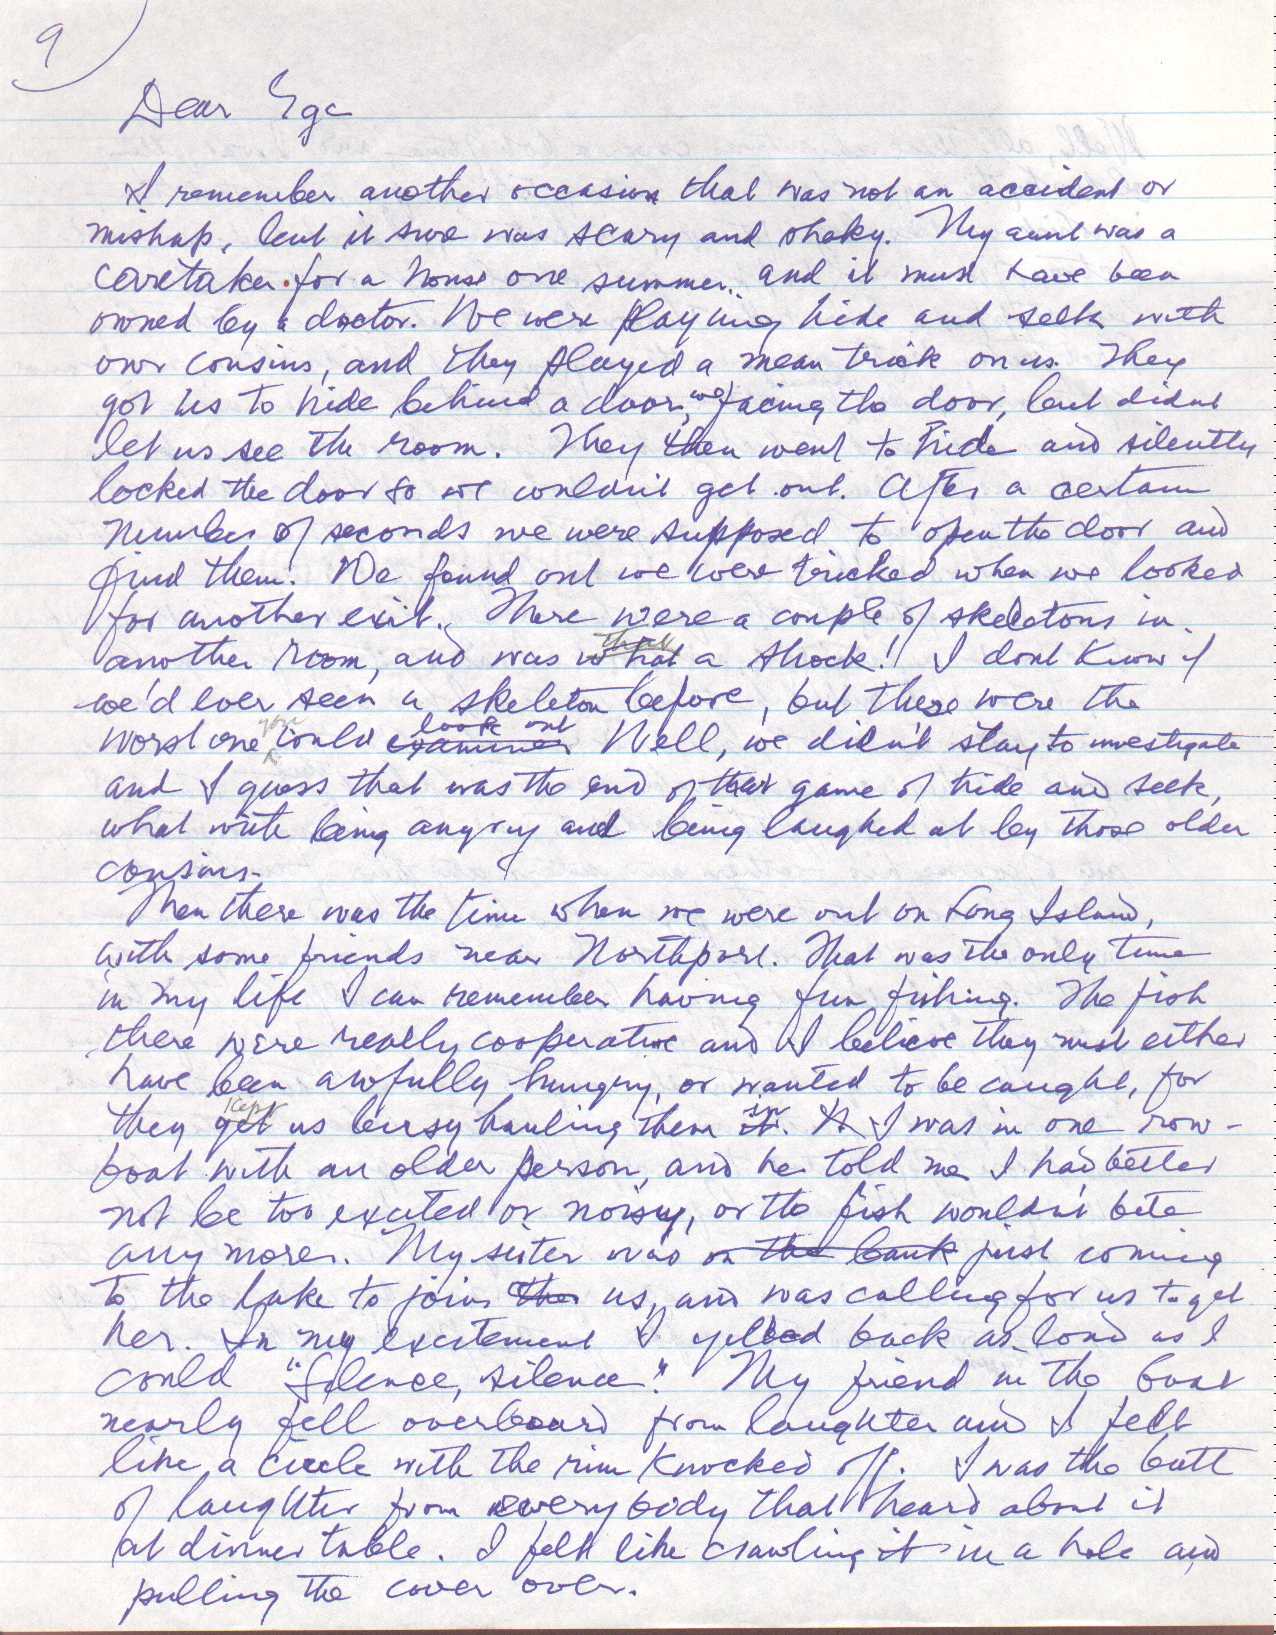 9
Dear Ege
I remember another occasion that was not an accident or
mishap, but it sure was scary and shaky. My aunt was a
caretaker for a house one summer, and it must have been
owned by a doctor. We were playing hide and seek with
our cousins, and they played a mean trick on us. They
got us to hide behind a door, we facing the door, but didnt
let us see the room. They then went to hide and silently
locked the door so we couldn't get out. After a certain
number of seconds we were supposed to open the door and
find them. We found out we were tricked when we looked
for another exit. There were a couple of skeletons in
another room, and was that a shock! I dont know if
we'd ever seen a skeleton before, but these were the
worst one you could look at Well, we didn't stay to investigate
and I guess that was the end of that game of hide and seek,
what with being angry and being laughed at by those older
cousins.
Then there was the time when we were out on Long Island,
with some friends near Northport. That was the only time
in my life I can remember having fun fishing. The fish
there were really cooperative and I believe they must either
have been awfully hungry, or wanted to be caught, for
they kept us busy hauling them in. I was in one row-
boat with an older person, and he told me I had better
not be too excited or noisy, or the fish wouldn't bite
any more. My sister was on the bank just coming
to the lake to join us, and was calling for us to get
her. In my excitement I yelled back as loud as I
could "Silence, silence". My friend in the boat
nearly fell overboard from laughter and I felt
like a circle with the rim knocked off. I was the butt
of laughter from everybody that heard about it
at dinner table. I felt like crawling in a hole and
pulling the cover over.